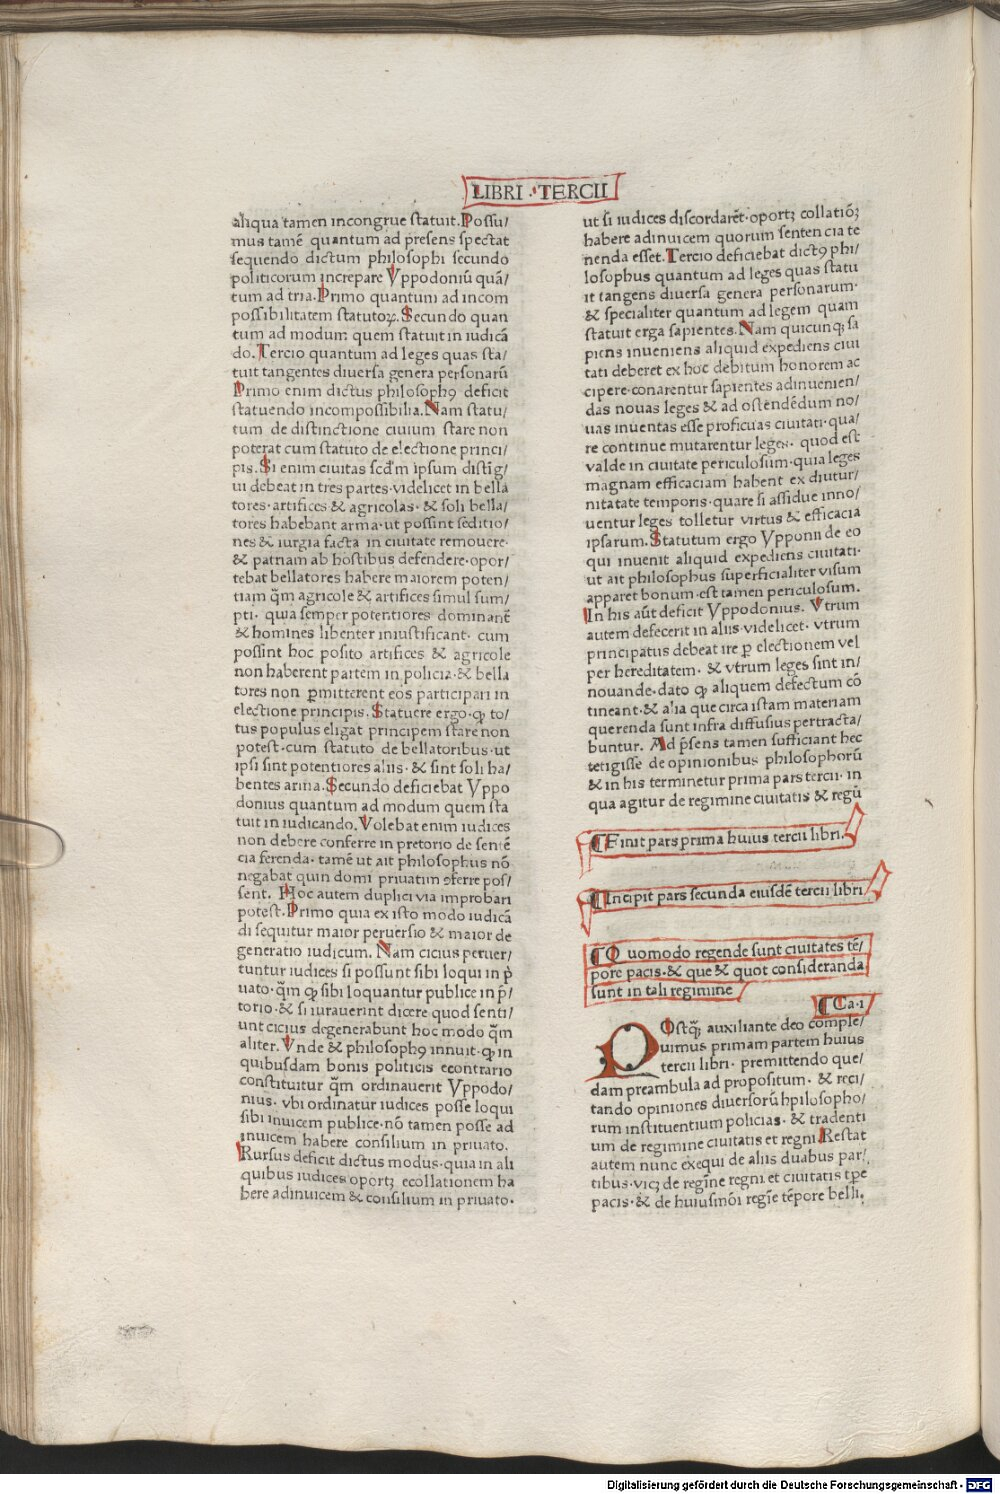 LIBRI · TERCII
aliqua tamen incongrue statuit. Possu/
mus tamē quantum ad presens spectat
sequendo dictum philosophi secundo
politicorum increpare Yppodoniū quā/
tum ad tria. Primo quantum ad incom
possibilitatem statutoꝝ. Secundo quan
tum ad modum quem statuit in iudicā
do. Tercio quantum ad leges quas sta/
tuit tangentes diuersa genera personarū
Primo enim dictus philosophꝯ deficit
statuendo incompossibilia. Nam statu/
tum de distinctione ciuium stare non
poterat cum statuto de electione princi/
pis. Si enim ciuitas scd̄m ipsum distīg/
ui debeat in tres partes · videlicet in bella
tores · artifices & agricolas · & soli bella/
tores habebant arma · ut possint seditio/
nes & iurgia facta in ciuitate remouere ·
& patriam ab hostibus defendere · opor/
tebat bellatores habere maiorem poten/
tiam q̄m agricole & artifices simul sum/
pti · quia semper potentiores dominant̄
& homines libenter iniustificant · cum
possint hoc posito artifices & agricole
non haberent partem in policia · & bella
tores non ꝑmitterent eos participari in
electione principis. Statuere ergo · ꝙ to/
tus populus eligat principem stare non
potest · cum statuto de bellatoribus · ut
ipsi sint potentiores aliis · & sint soli ha/
bentes arma. Secundo deficiebat Yppo
donius quantum ad modum quem sta
tuit in iudicando. Volebat enim iudices
non debere conferre in pretorio de sentē
cia ferenda · tamē ut ait philosophus nō
negabat quin domi priuatim ꝯferre pos/
sent. Hoc autem duplici via improbari
potest. Primo quia ex isto modo iudicā
di sequitur maior peruersio & maior de
generatio iudicum. Nam cicius peruer/
tuntur iudices si possunt sibi loqui in p̄
uato · q̄m ꝙ sibi loquantur publice in p̄/
torio · & si iurauerint dicere quod senti/
unt cicius degenerabunt hoc modo q̄m
aliter. Vnde & philosophꝯ innuit · ꝙ in
quibusdam bonis politicis econtrario
constituitur q̄m ordinauerit Yppodo/
nius · vbi ordinatur iudices posse loqui
sibi inuicem publice · nō tamen posse ad
inuicem habere consilium in priuato.
Rursus deficit dictus modus · quia in ali
quibus iudices oportꝫ ecollationem ha
bere adinuicem & consilium in priuato ·
ut si iudices discordarēt · oportꝫ collatiōꝫ
habere adinuicem quorum sentencia te
nenda esset. Tercio deficiebat dictꝯ phi/
losophus quantum ad leges quas statu
it tangens diuersa genera personarum ·
& specialiter quantum ad legem quam
statuit erga sapientes. Nam quicunqꝫ sa
piens inueniens aliquid expediens ciui
tati deberet ex hoc debitum honorem ac
cipere · conarentur sapientes adinuenien/
das nouas leges & ad ostendēdum no/
uas inuentas esse proficuas ciuitati · qua/
re continue mutarentur leges · quod est
valde in ciuitate periculosum · quia leges
magnam efficaciam habent ex diutur/
nitatate temporis · quare si assidue inno/
uentur leges tolletur virtus & efficacia
ipsarum. Statutum ergo Ypponii de eo
qui inuenit aliquid expediens ciuitati ·
ut ait philosophus superficialiter visum
apparet bonum · est tamen periculosum.
In his aūt deficit Yppodonius. Vtrum
autem defecerit in aliis · videlicet · vtrum
principatus debeat ire ꝑ electionem vel
per hereditatem · & vtrum leges sint in/
nouande · dato ꝙ aliquem defectum cō
tineant · & alia que circa istam materiam
querenda sunt infra diffusius pertracta/
buntur. Ad p̄sens tamen sufficiant hec
tetigisse de opinionibus philosophorū
& in his terminetur prima pars tercii · in
qua agitur de regimine ciuitatis & regū
¶ Finit pars prima huius tercii libri.
¶ Incipit pars secunda eiusdē tercii libri
¶ Quomodo regende sunt ciuitates tē/
pore pacis · & que & quot consideranda
sunt in tali regimine
¶ Ca · i
POstqꝫ auxiliante deo comple/
uimus primam partem huius
tercii libri · premittendo que/
dam preambula ad propositum · & reci/
tando opiniones diuersorū hpilosopho/
rum instituentium policias · & tradenti
um de regimine ciuitatis et regni. Restat
autem nunc exequi de aliis duabus par/
tibus · vicꝫ de regīne regni et ciuitatis tp̄e
pacis · & de huiusmōi regīe tēpore belli.
Digitalisierung gefördert durch die Deutsche Forschungsgemeinschaft - DFG